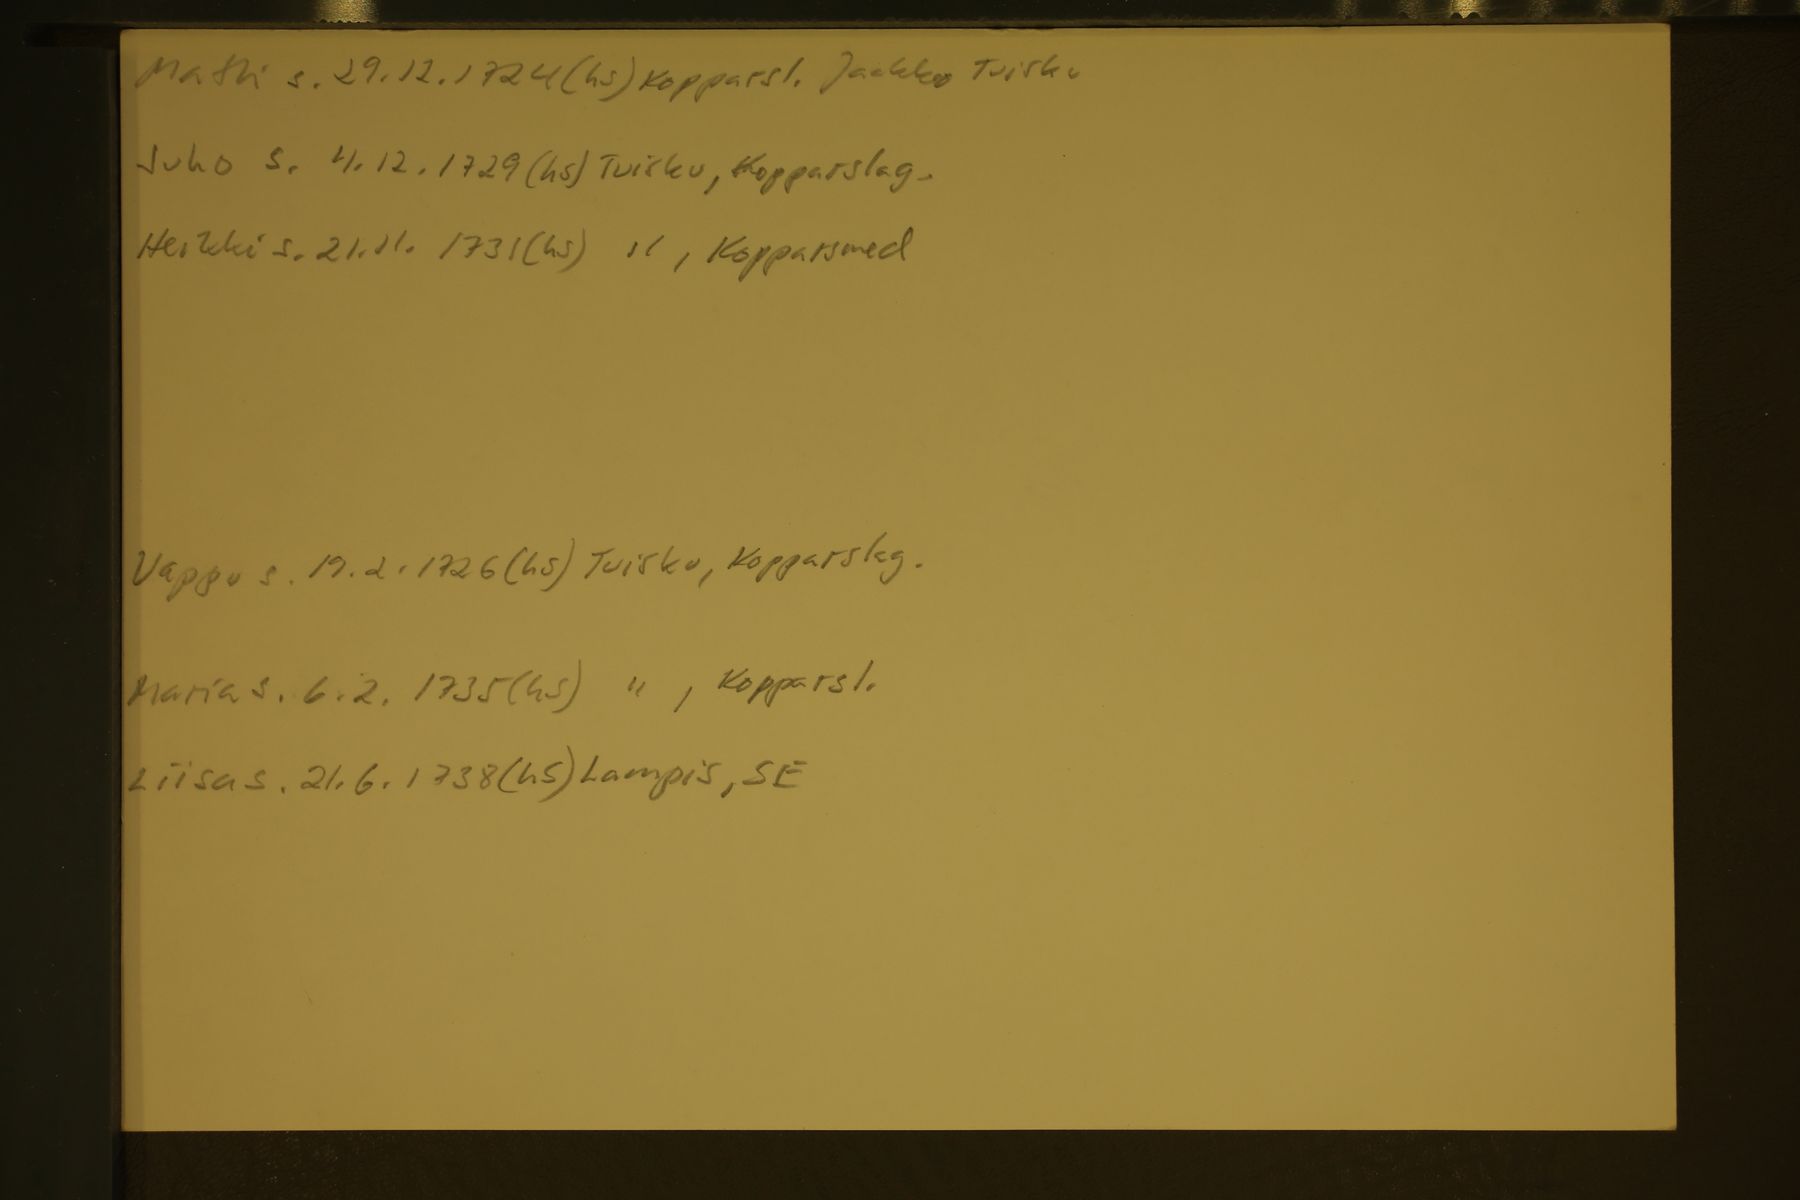 Matti s. 29.12.1724(hs) Kopparsl. Jaakko Tuisku
Juho s. 4.12.1729(hs) Tuisku, Kopparslag.
Heikki s. 21.11. 1731(hs) ", Kopparsmed
Vappu s. 19.2.1726(hs) Tuisku, Kopparslag.
Maria s. 6.2. 1735(hs) ", Kopparsl.
Liisa s. 21.6.1738(hs) Lampis, SE